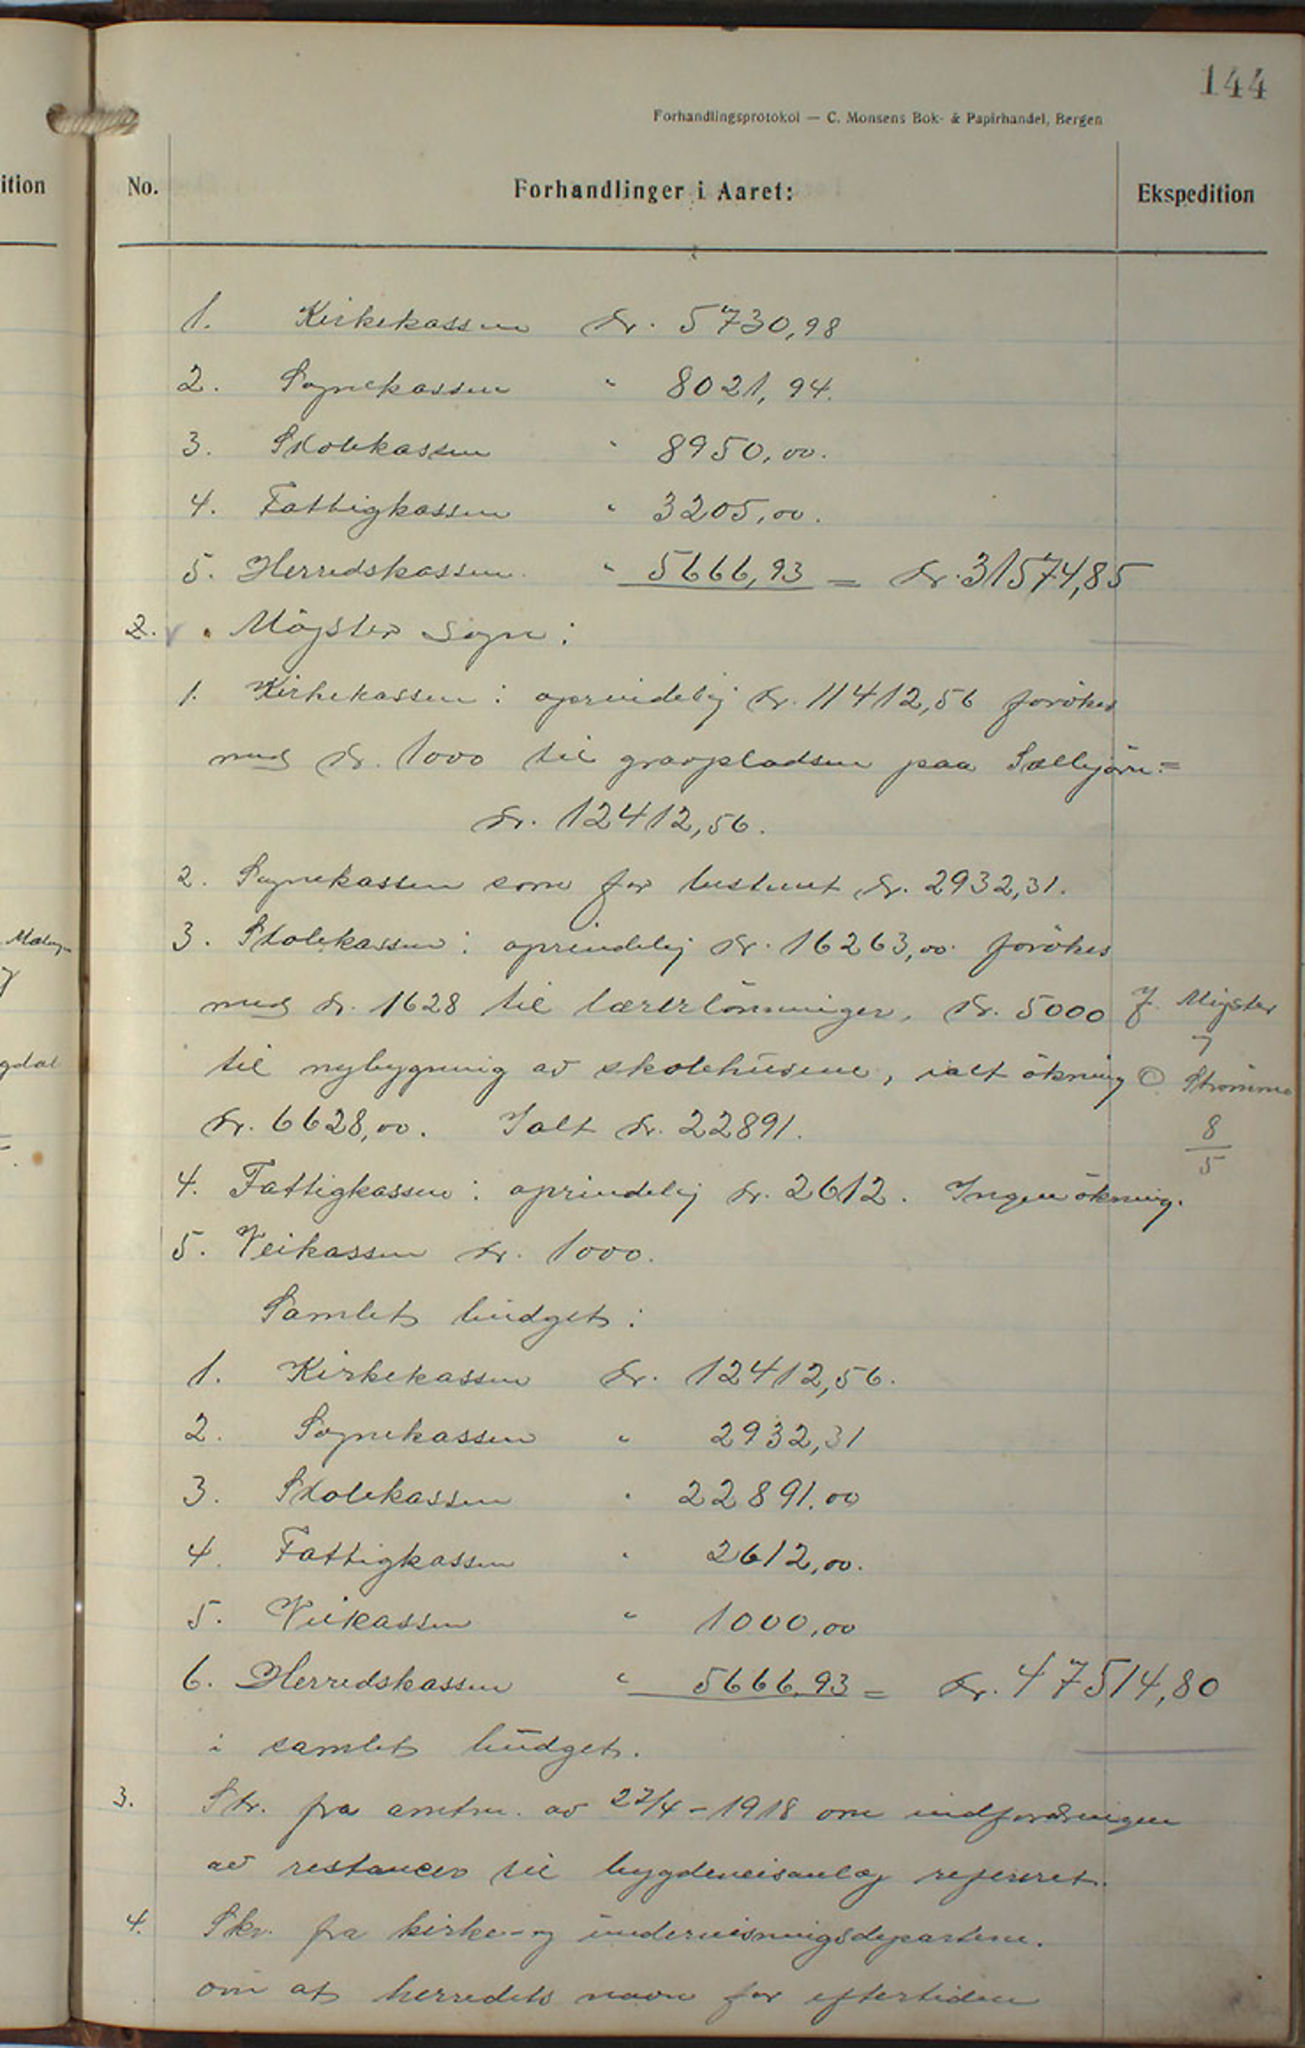 144
Forhandlingsprotokol — C. Monsens Bok- & Papirhandel, Bergen
ition
No. Forhandlinger i Aaret: Ekspedition
1. Kirkekassen Kr. 5730,98
2. Sognekassen " 8021,94.
3. Skolekassen " 8950,00.
4. Fattigkassen " 3205,00.
5. Herredskassen. " 5666,93 = Kr. 31574,85
2. Møgster sogn:
1. Kirkekassen: oprindelig kr. 11412,56 forökes
med kr. 1000 til gravpladsen paa Selbjörn =
kr. 12412,56.
2. Sognekassen som för bestemt kr. 2932,31.
3. Skolekassen: oprindelig kr. 16263,00 forökes
med kr. 1628 til lærerlönninger, kr. 5000
til nybygning av skolehusene, ialt ökning
kr. 6628,00. Ialt kr. 22891.
J. Mögster
7
O. Strömme
8/5
4. Fattigkassen: oprindelig kr. 2612. Ingen ökning.
5. Veikassen kr. 1000.
Samlet budget:
1. Kirkekassen Kr. 12412,56.
2. Sognekassen " 2932,31
3. Skolekassen " 22891.00
4. Fattigkassen " 2612,00.
5. Veikassen " 1000,00
6. Herredskassen " 5666,93 = Kr. 47514,80
i samlet budget.
3. Skr. fra amtm. av 22/4-1918 om indfordringen
av restancer til bygdeveisanlæg referert.
4. Skr. fra kirke- og undervisningsdepartem.
om at herredets navn for eftertiden
gdal